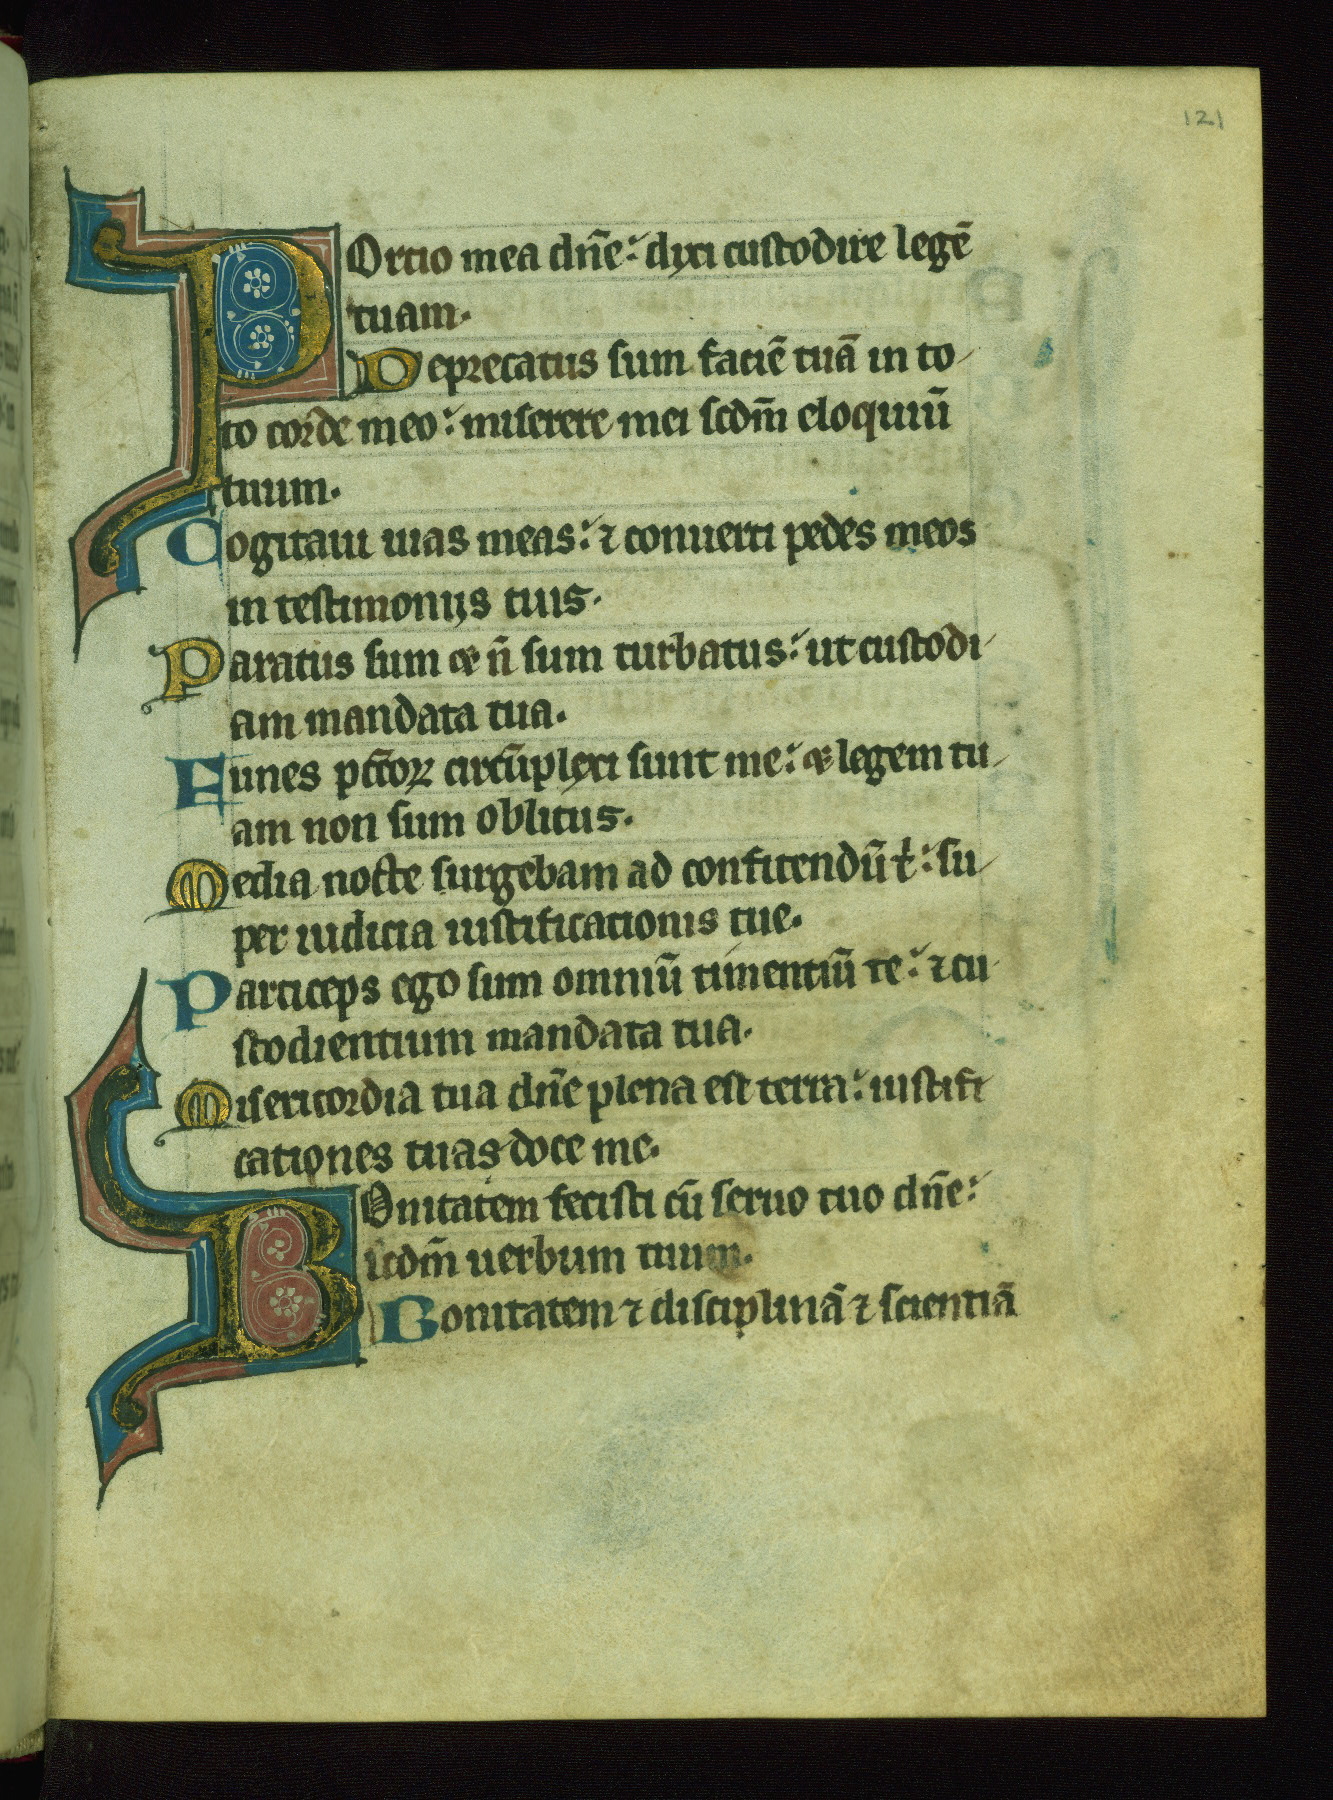 121
POrtio mea dn̄e: dyxi custodire legē
tuam.
Deprecatus sum faciē tuā in to
to corde meo: miserere mei scdm̄ eloquiū
tuum.
Cogitaui uias meas: ⁊ conuerti pedes meos
in testimonijs tuis.
Paratus sum & n̄ sum turbatus: ut custodi
am mandata tua.
Funes pctōꝝ circūplexi sunt me: & legem tu
am non sum oblitus.
Media nocte surgebam ad confitendū t̄: su
per iudicia iustificationis tue.
Particeps ego sum omniū timentiū te: ⁊ cu
stodientium mandata tua.
Misericordia tua dn̄e plena est terra: iustifi
cationes tuas doce me.
BOnitatem fecisti cū seruo tuo dn̄e:
scdm̄ uerbum tuum.
Bonitatem ⁊ disciplinā ⁊ scientiā